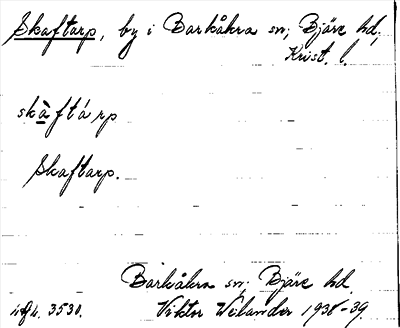 Skaftarp, by i Barkåkra sn; Bjäre hd,
Krist. l.
skàftárp
Skaftarp.
Barkåkra sn; Bjäre hd.
3530. Viktor Welander 1938-39.